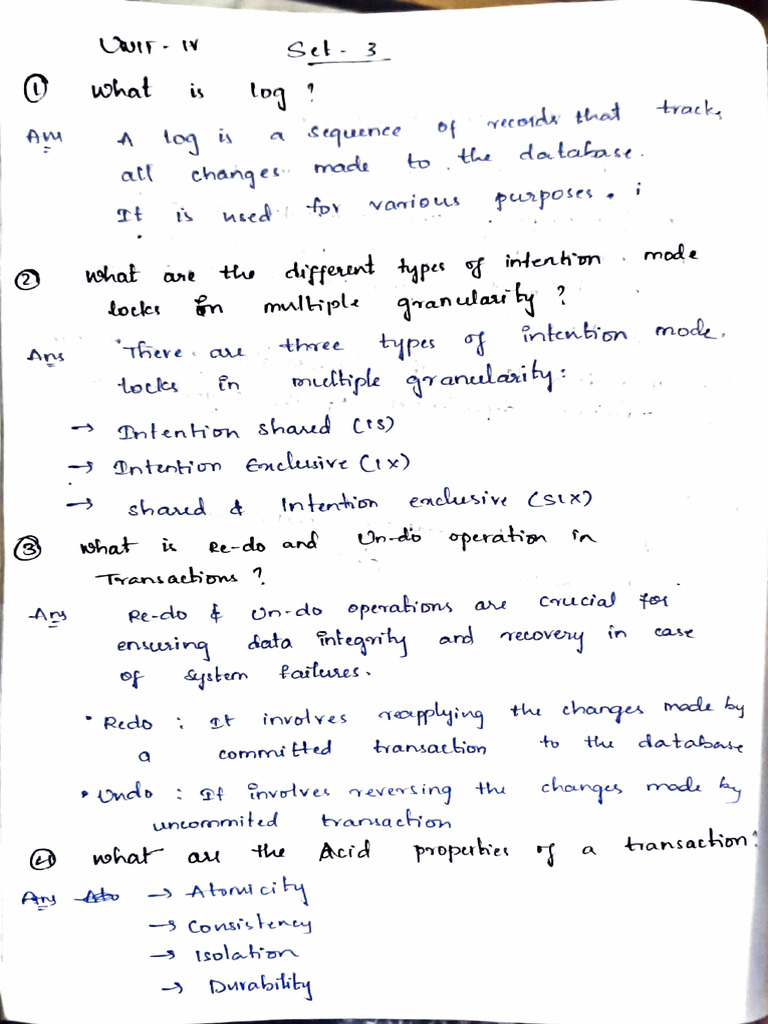 UNIT - IV Set - 3
① What is log ?
Ans A log is a sequence of records that track
all changes made to the database.
It is used for various purposes. i
② What are the different types of intention mode
locks in multiple granularity ?
Ans There are three types of intention mode
locks in multiple granularity :
→ Intention shared (IS)
→ Intention Exclusive (IX)
→ shared & Intention exclusive (SIX)
③ What is Re-do and Un-do operation in
Transactions ?
Ans Re-do & Un-do operations are crucial for
ensuring data integrity and recovery in case
of system failures.
• Redo : It involves reapplying the changes made by
a committed transaction to the database
• Undo : It involves reversing the changes made by
uncommited transaction
④ What are the Acid properties of a transaction?
Ans Ato → Atomicity
→ Consistency
→ Isolation
→ Durability